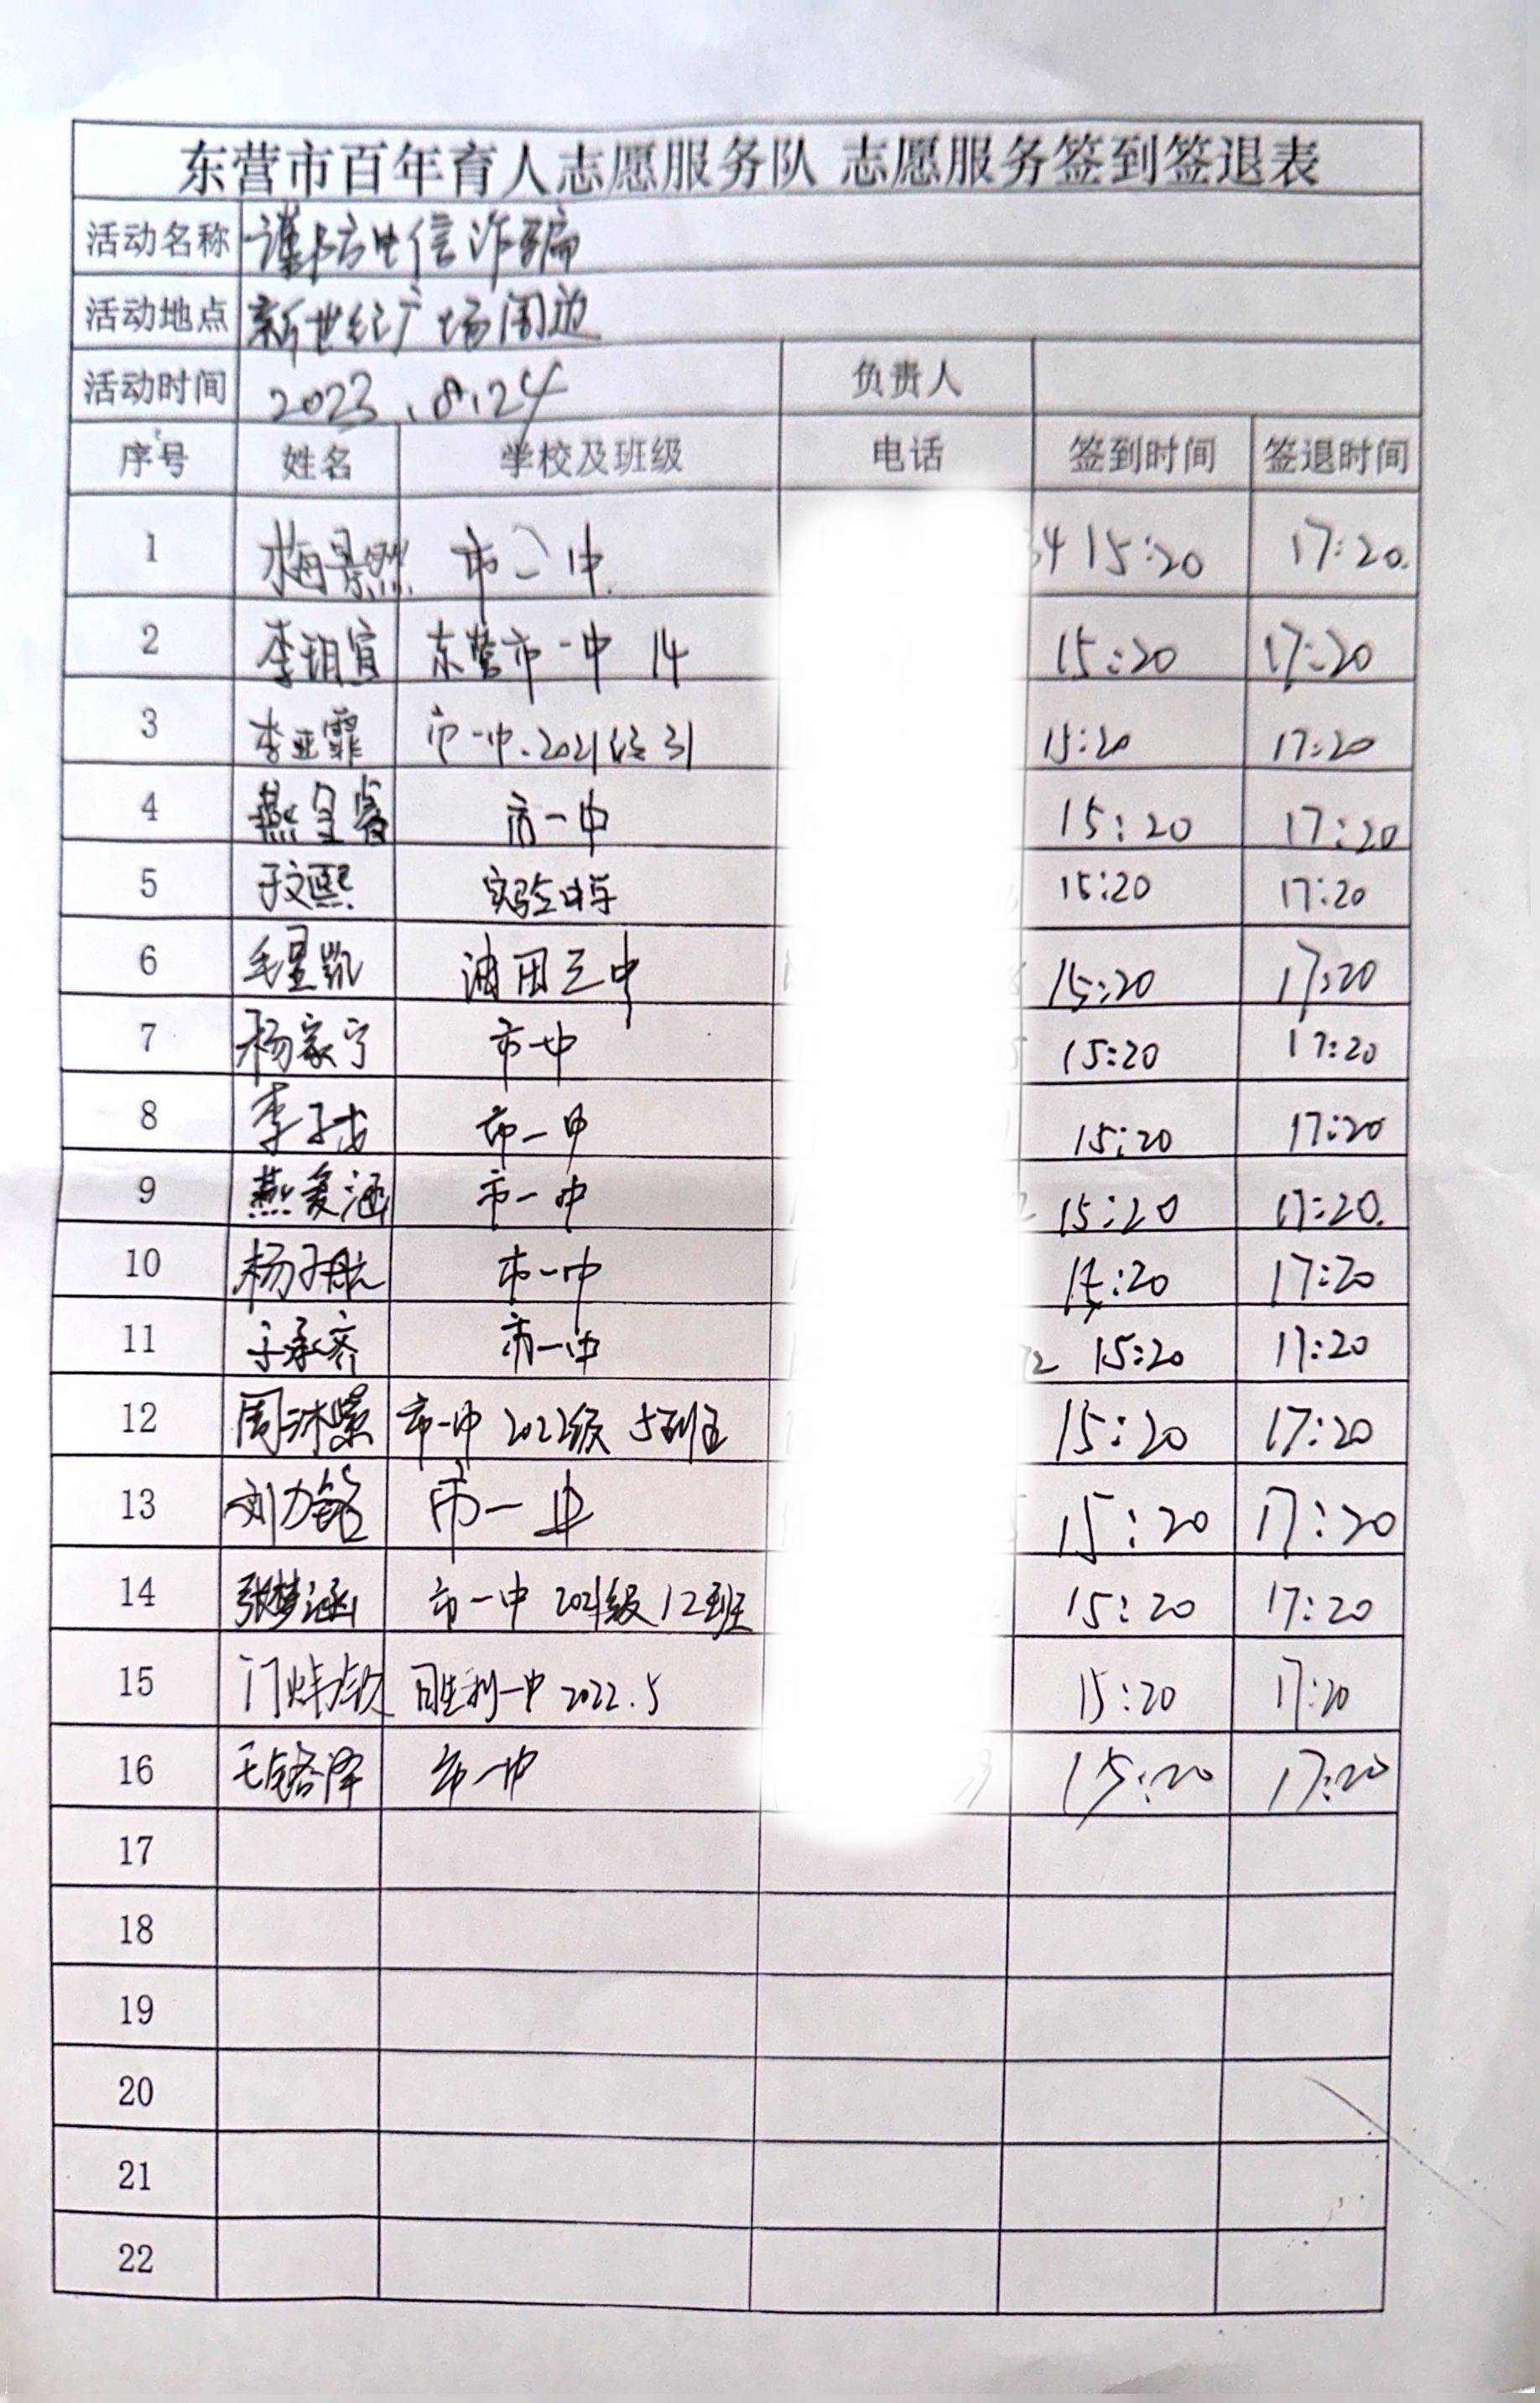 东营市百年育人志愿服务队 志愿服务签到签退表
活动名称 谨防电信诈骗
活动地点 新世纪广场周边
活动时间 2023.8.24 负责人
序号 姓名 学校及班级 电话 签到时间 签退时间
1 梅景然 市一中 34 15:20 17:20.
2 李玥宜 东营市一中 14 15:20 17:20
3 李亚霏 市一中.2021级31 15:20 17:20
4 燕呈睿 市一中 15:20 17:20
5 于文熙 实验中学 15:20 17:20
6 毛星凯 油田三中 15:20 17:20
7 杨家宁 市一中 15:20 17:20
8 李子 市一中 15:20 17:20
9 燕 涵 市一中 2 15:20 17:20.
10 杨子航 市一中 15:20 17:20
11 于承齐 市一中 72 15:20 17:20
12 周沐 市一中 2022级 5班 15:20 17:20
13 刘力铭 市一中 15:20 17:20
14 张梦涵 市一中 2021级12班 15:20 17:20
15 门 胜利一中 2022.5 15:20 17:20
16 泽 市一中 15:20 17:20
17
18
19
20
21
22